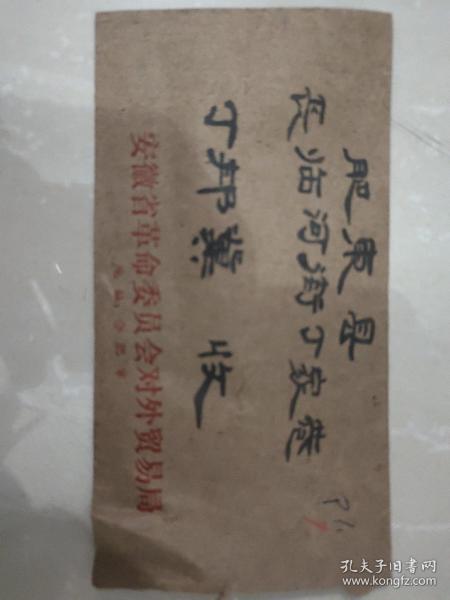 肥东县
长临河街丁家巷
丁邦冀 收
安徽省革命委员会对外贸易局
地址：合肥市
P1.
7.
孔夫子旧书网
www.kongfz.com